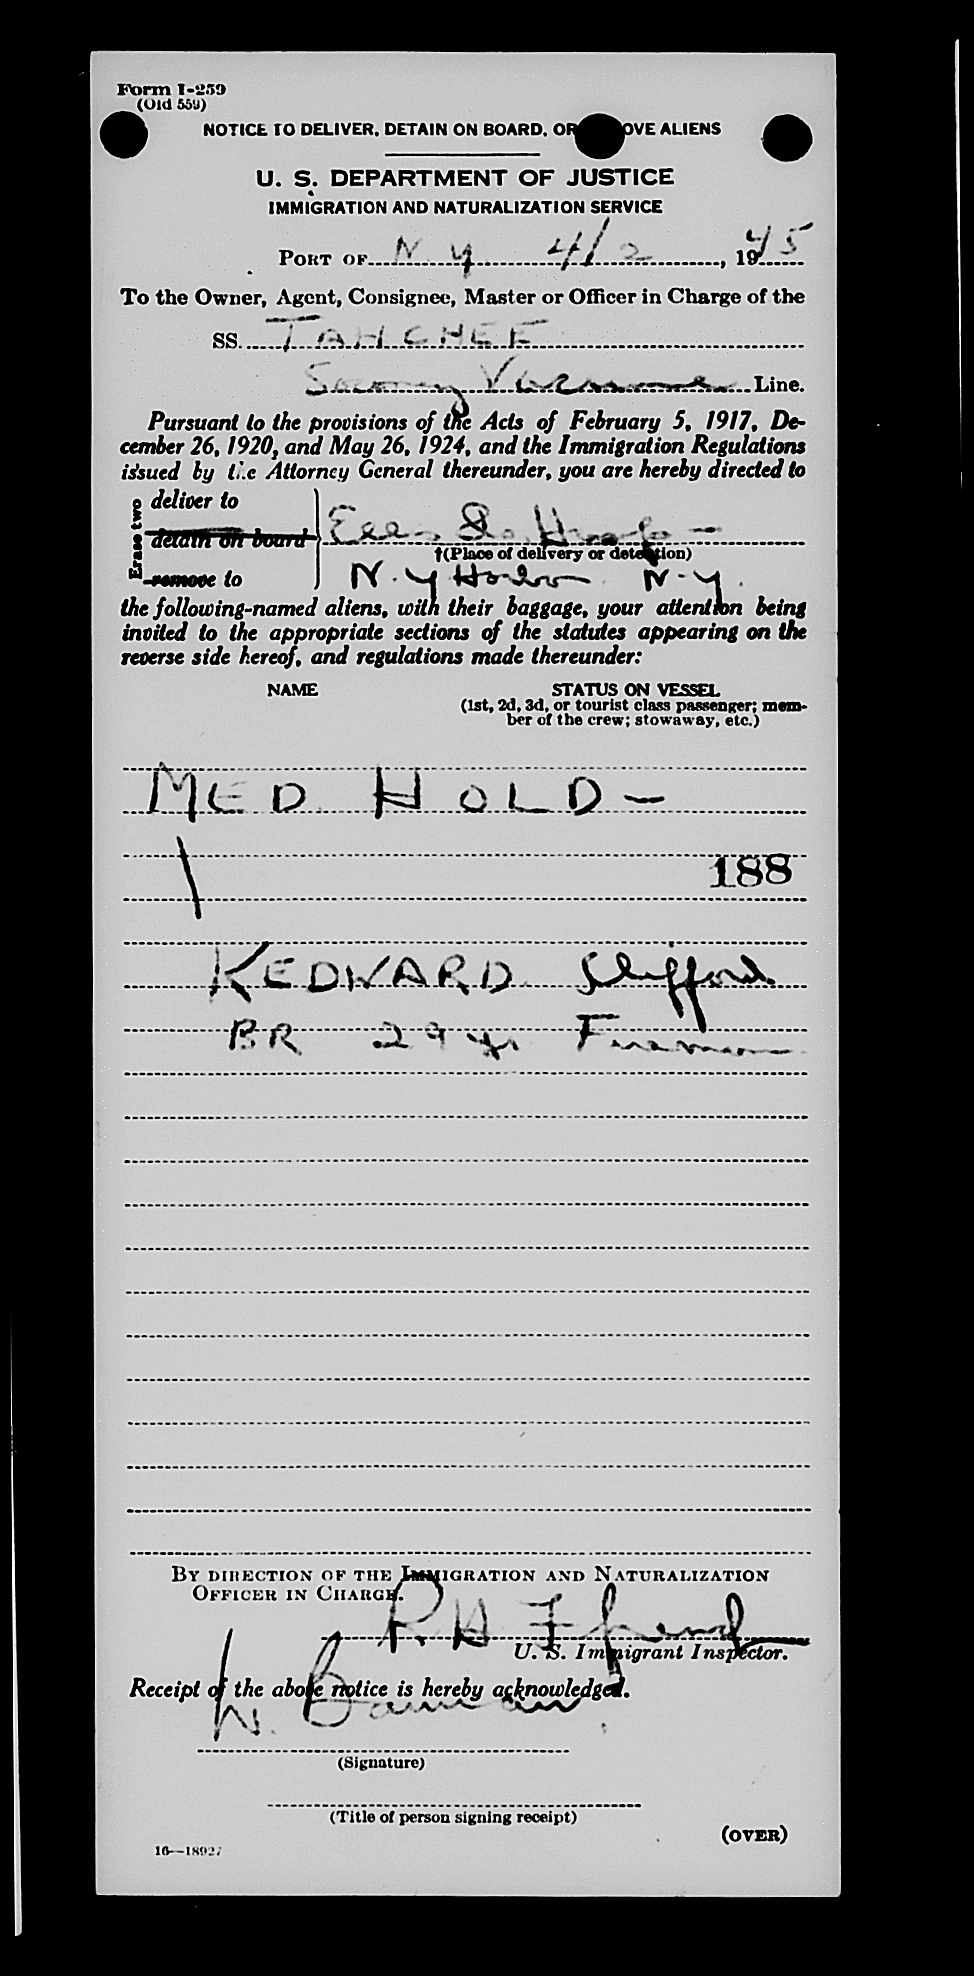 Form I-259
(Old 559)
NOTICE TO DELIVER, DETAIN ON BOARD, OR OVE ALIENS
U. S. DEPARTMENT OF JUSTICE
IMMIGRATION AND NATURALIZATION SERVICE
PORT OF N. Y 4/2, 1945
To the Owner, Agent, Consignee, Master or Officer in Charge of the
SS. TAHCHEE
Socony Vacuum Line.
Pursuant to the provisions of the Acts of February 5, 1917, De-
cember 26, 1920, and May 26, 1924, and the Immigration Regulations
issued by the Attorney General thereunder, you are hereby directed to
Erase two
deliver to
detain on board Ellis Is. Hosp -
†(Place of delivery or detention)
remove to N. Y Harbor N. Y.
the following-named aliens, with their baggage, your attention being
invited to the appropriate sections of the statutes appearing on the
reverse side hereof, and regulations made thereunder:
NAME STATUS ON VESSEL
(1st, 2d, 3d, or tourist class passenger; mem-
ber of the crew; stowaway, etc.)
MED HOLD -
188
KEDWARD Clifford
BR 29 yrs Fireman
BY DIRECTION OF THE IMMIGRATION AND NATURALIZATION
OFFICER IN CHARGE.
R. H.
U. S. Immigrant Inspector.
Receipt of the above notice is hereby acknowledged.
(Signature)
(Title of person signing receipt)
(OVER)
16—18927